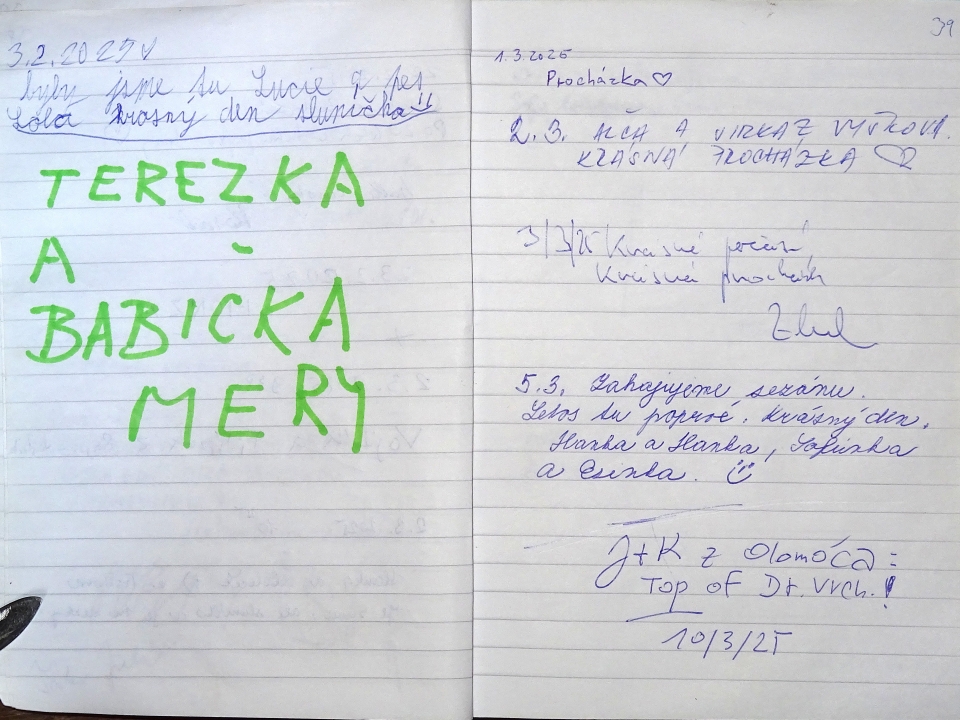 3.2.2025
byly jsme tu Lucie a pes
krásný den sluníčko
TEREZKA
A
BABIČKA
MERY
39
1.3.2025
Procházka ♡
2.3. A VIRKA Z VYŠKOVA.
KRÁSNÁ PROCHÁZKA ♡
3/3/25 Krásné počasí
Krásná
5.3. Zahajujeme sezónu.
Letos tu poprvé. Krásný den.
Hanka a Hanka, Sofinka
a
J+K z Olomóca:
Top of Dr. Vrch.!
10/3/25